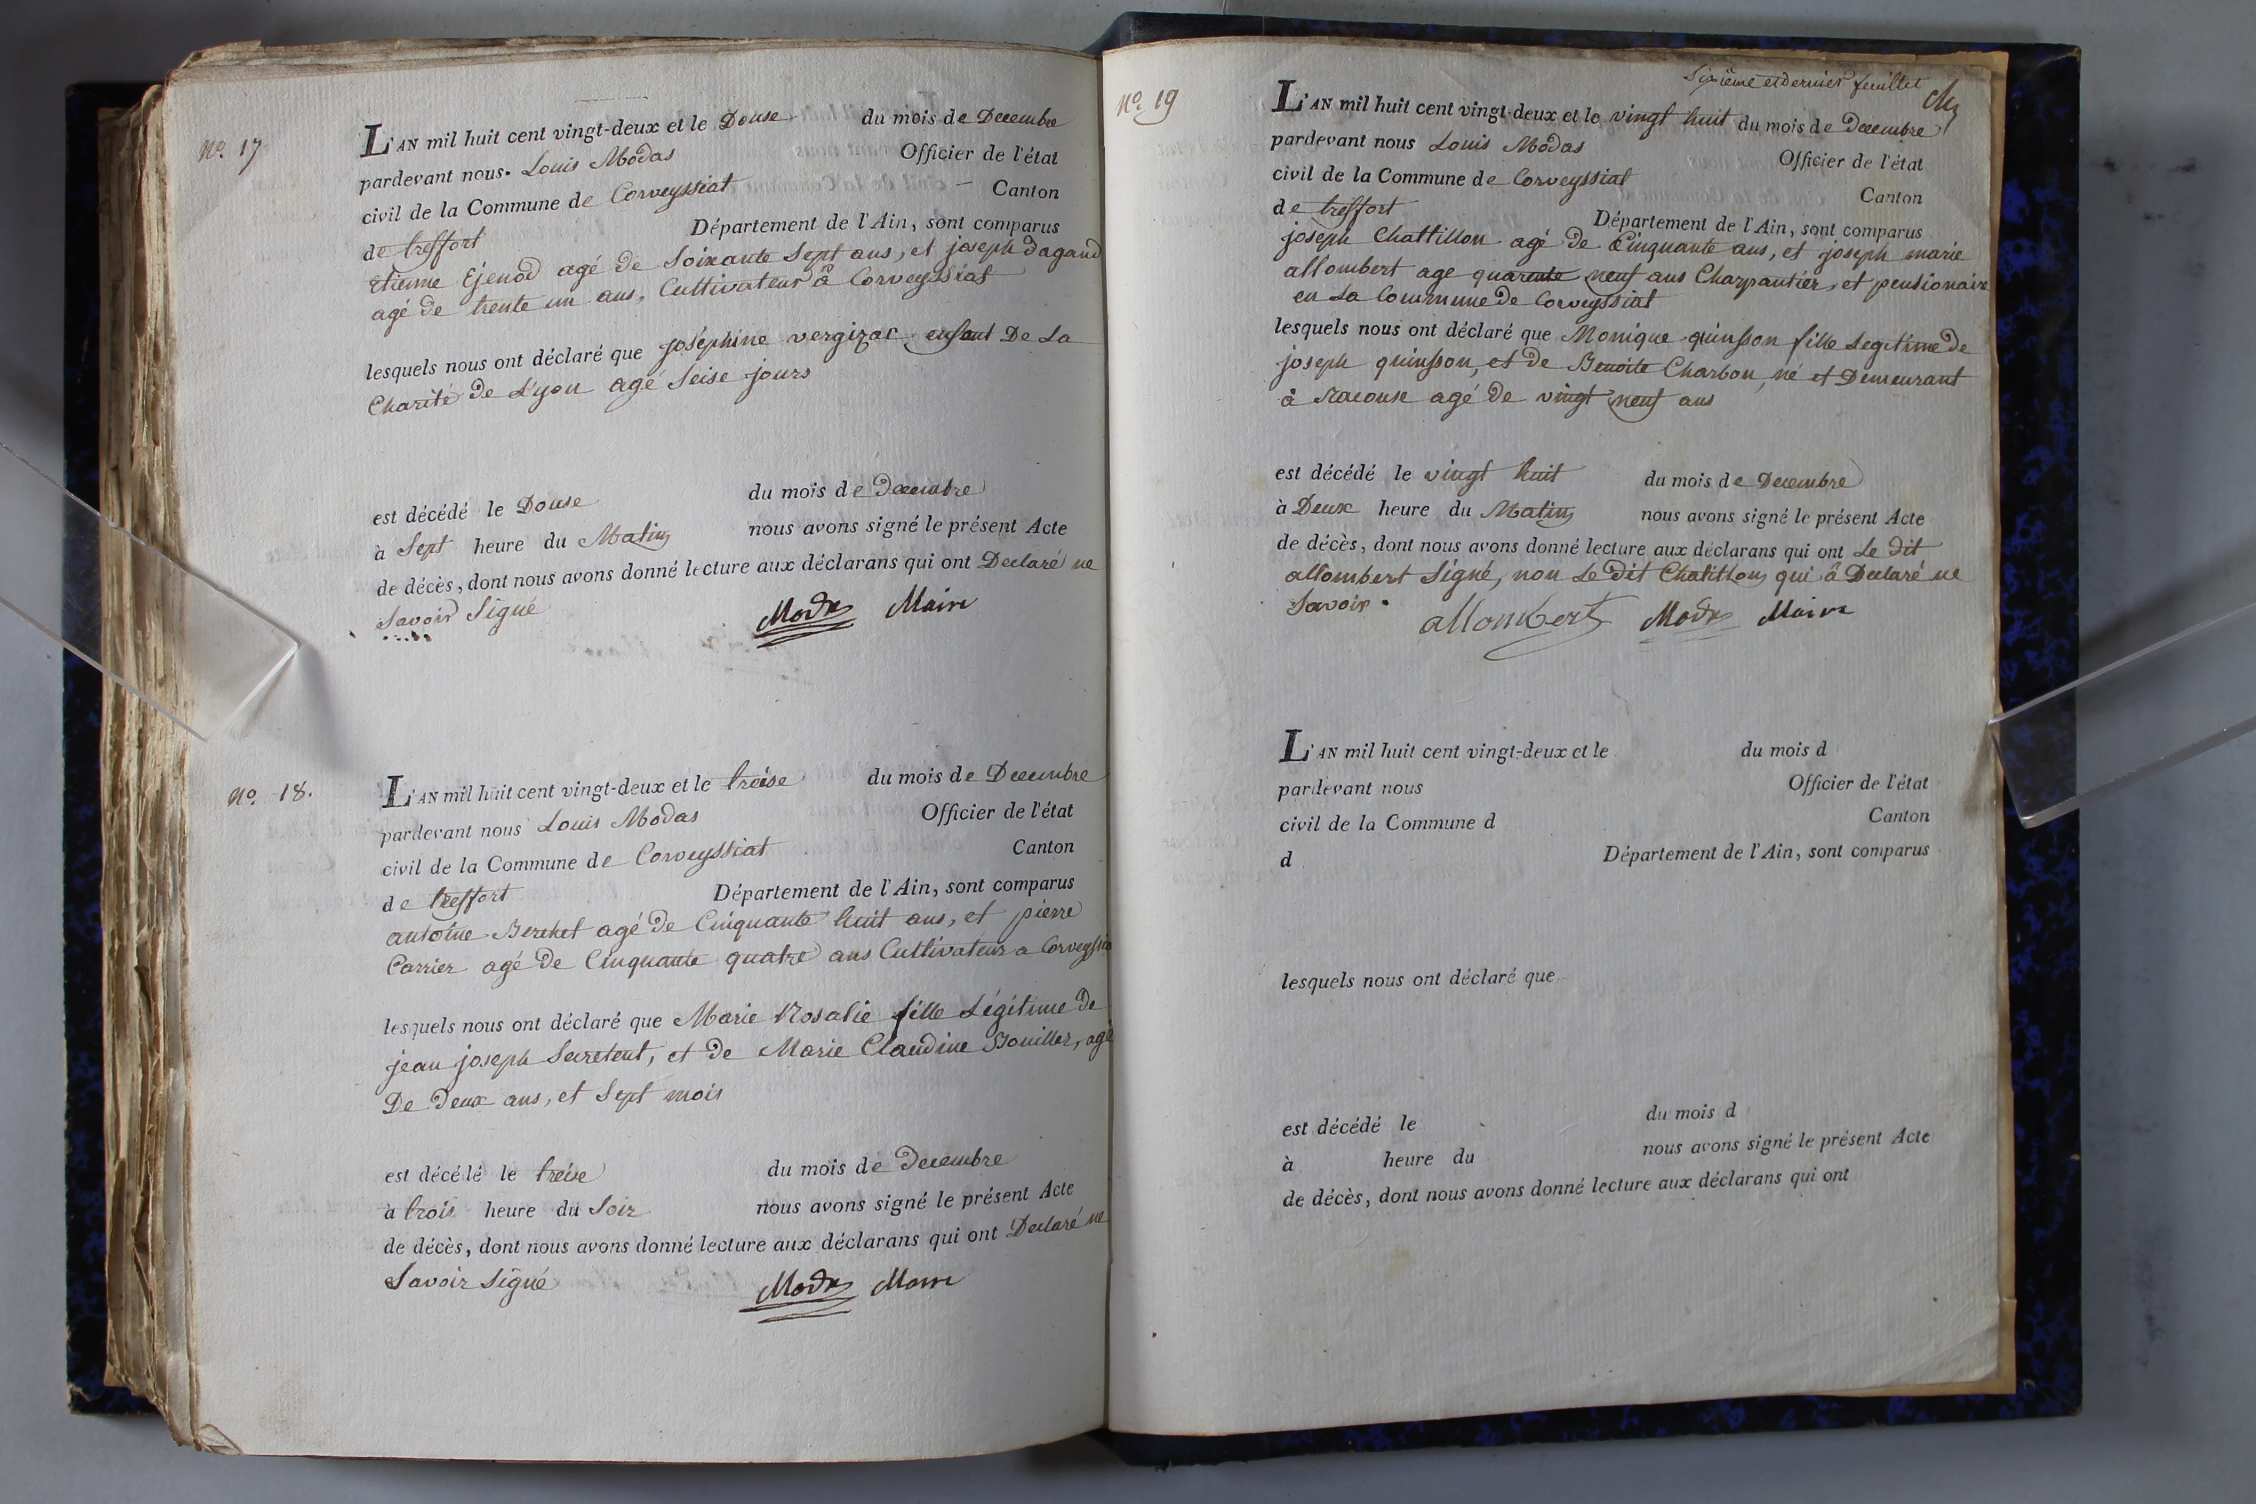 No. 17
L'AN mil huit cent vingt-deux et le Douse du mois de Decembre
pardevant nous Louis Modas Officier de l'état
civil de la Commune de Corveyssiat Canton
de treffort Département de l'Ain, sont comparus
etienne Ejenod agé de Soixante Sept ans, et joseph Dagand
agé de trente un ans, Cultivateur â Corveyssiat
lesquels nous ont déclaré que joséphine vergizac enfant De La
Charité de Lyon agé Seise jours
est décédé le Douse du mois de Decembre
à Sept heure du Matin nous avons signé le présent Acte
de décès, dont nous avons donné lecture aux déclarans qui ont Declaré ne
Savoir Signé
Modas Maire
No. 18.
L'AN mil huit cent vingt-deux et le treise du mois de Decembre
pardevant nous Louis Modas Officier de l'état
civil de la Commune de Corveyssiat Canton
de treffort Département de l'Ain, sont comparus
antoine Berchet agé de Cinquante huit ans, et pierre
Carrier agé de Cinquante quatre ans Cultivateur a Corveyssia
lesquels nous ont déclaré que Marie Rosalie fille Légitime de
jean joseph Secretent, et de Marie Claudine Bouiller, agé
De Deux ans, et Sept mois
est décédé le treise du mois de Decembre
à trois heure du Soir nous avons signé le présent Acte
de décès, dont nous avons donné lecture aux déclarans qui ont Declaré ne
Savoir Signé
Modas Maire
Sixième et dernier feuillet
No. 19
L'AN mil huit cent vingt-deux et le vingt huit du mois de Decembre
pardevant nous Louis Modas Officier de l'état
civil de la Commune de Corveyssiat Canton
de treffort Département de l'Ain, sont comparus
joseph Chattillon agé de Cinquante ans, et joseph marie
allombert age quarente neuf ans Charpantier, et pensionaire
en La Commune de Corveyssiat
lesquels nous ont déclaré que Monique quinsson fille Legitime de
joseph quinsson, et de Benoite Charbon, né et Demeurant
â Racouse agé de vingt neuf ans
est décédé le vingt huit du mois de Decembre
à Deux heure du Matin nous avons signé le présent Acte
de décès, dont nous avons donné lecture aux déclarans qui ont Le dit
allombert Signé, non Le Dit Chatillon, qui â Declaré ne
Savoir.
allombert Modas Maire
L'AN mil huit cent vingt-deux et le du mois d
pardevant nous Officier de l'état
civil de la Commune d Canton
d Département de l'Ain, sont comparus
lesquels nous ont déclaré que
est décédé le du mois d
à heure du nous avons signé le présent Acte
de décès, dont nous avons donné lecture aux déclarans qui ont